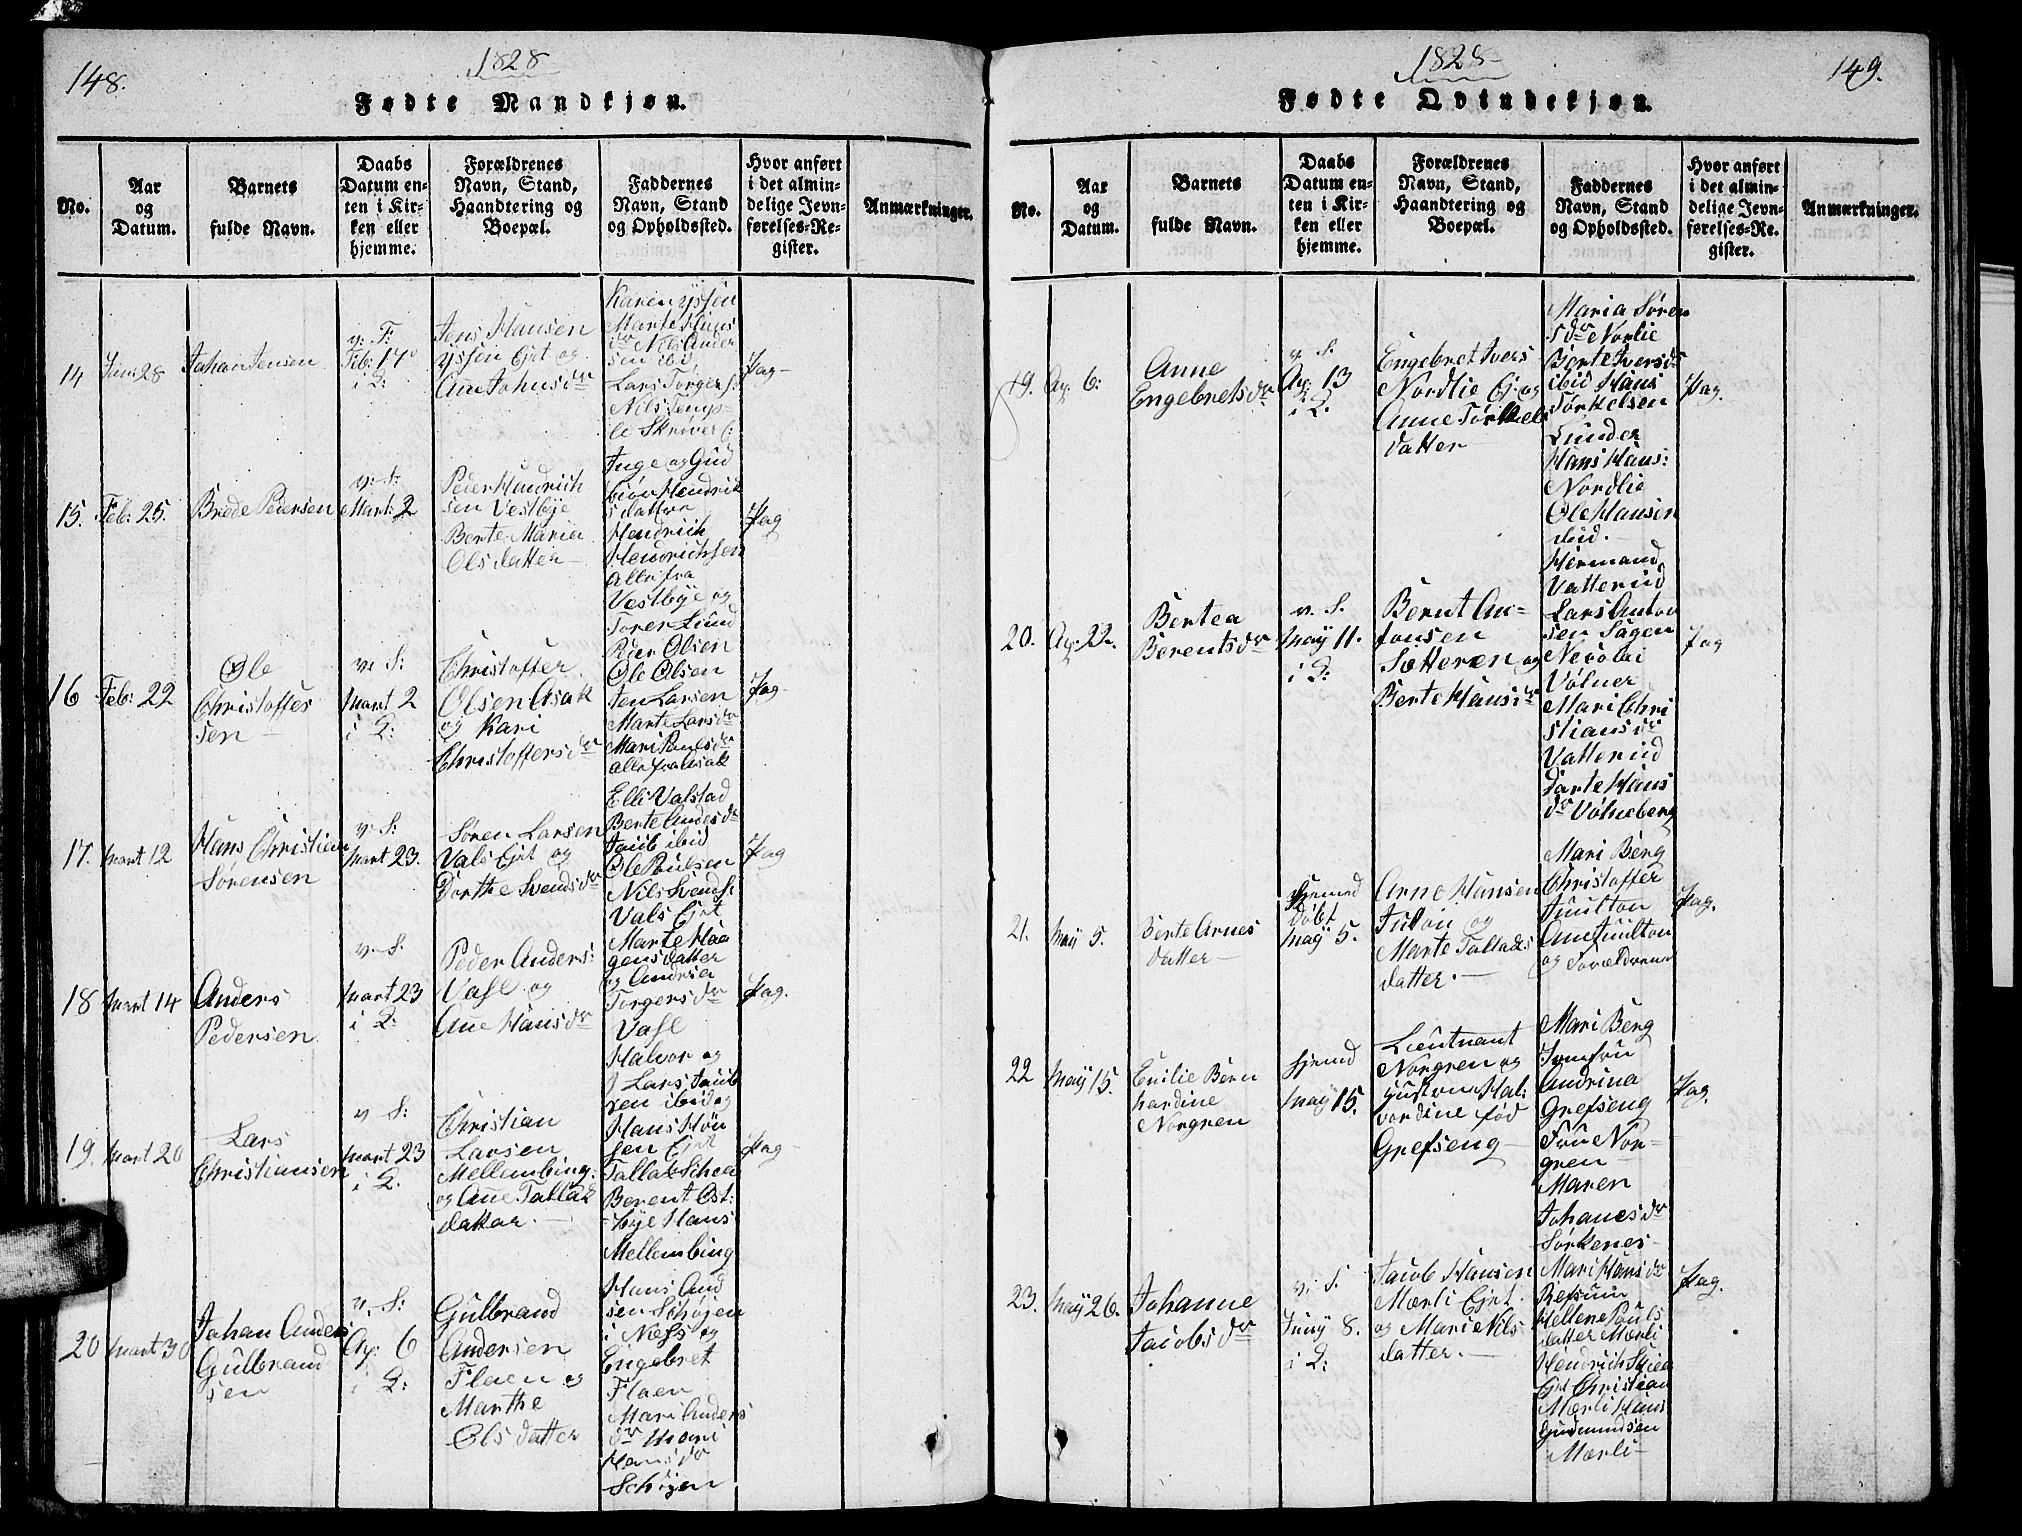 148.
1828
Fødte Mandkjøn.
No.
Aar
og
Datum.
Barnets
fulde Navn.
Daabs
Datum en-
ten i Kir-
ken eller
hjemme.
Forældrenes
Navn, Stand,
Haandtering og
Boepæl.
Faddernes
Navn, Stand
og Opholdssted.
Hvor anført
i det almin-
delige Jevn-
førelses-Re-
gister.
Anmærkninger.
14
Jan: 28
Johan Jensen
v: F:
Feb: 17
i D:
Jens Hansen
Ejet og
Ane Johnsdr
Karen
Marte Hans
dr Nils Ander
sen ibid
Lars Torger
Nils
Pag
15.
Feb: 25.
Brede Pedersen
v: S:
Mart: 2
Peder Hendrich
sen Vestbye
Berte Maria
Olsdatter
Inge og Gud
biør Hendrik
sdattre
Hendrich
Hendrichsen
alle fra
Vestbye og
Sører Lund
Pag
16
Feb: 22
Ole
Christoffer
sen
v: S:
Mart 2
i D:
Christoffer
Olsen Asak
og Kari
Christoffersdr
Peder Olsen
Ole Olsen
Jen Larsen
Marte Larsdr
Mari Paulsdr
alle fra Asak
Pag
17.
Mart 12
Hans Christian
Sørensen
v: S:
Mart 23.
Søren Larsen
Vals Ejet og
Dorthe Svendsdr
Elli Valstad
Berte Andersdr
ibid
Ole Paulsen
Nils Svends:
Vals Ejet
Pag
18
Mart 14
Anders
Pedersen
v: S:
Mart 23
i D:
Peder Anders:
Vahl og
Ane Hansdr
Marte Haa
gensdatter
og Andrea
Torgersdr
Vahl
Halvor og
Pag.
19.
Mart 20
Lars
Christiansen
v: S:
Mart 23
i D.
Christian
Larsen
Mellembing:
og Ane Tallak
datter.
Lars
ibid og
Hans
sen Ejet
Tallak
Berent Øst:
bye Hans
Mellembing
Pag
20
Mart 30
Johan Anders
Gulbrand
sen
v. S:
Ap: 6
i D:
Gulbrand
Andersen
Flaen og
Marthe
Olsdatter
Hans And
sen Schøien
i Næs og
Engebret
Flaen
Mari Anders
dr Mari
Hansdr
Schøien
149.
1828
Fødte Qvindekjøn.
No.
Aar
og
Datum.
Barnets
fulde Navn.
Daabs
Datum en-
ten i Kir-
ken eller
hjemme.
Forældrenes
Navn, Stand,
Haandtering og
Boepæl.
Faddernes
Navn, Stand
og Opholdssted.
Hvor anført
i det almin-
delige Jevn-
førelses-Re-
gister.
Anmærkninger.
19.
Ap: 6:
Anne
Engebretsdr
v. S.
Ap: 13
i D.
Engebret Ivers
Nordlie Ej. og
Anne Torkiels
datter
Maria Søren
sdr Norlie
Berte Iversdr
ibid Hans
Torkelsen
Lunder
Hans Hans:
Nordlie
Ole Hansen
ibid.
Pag.
20.
Ap: 22.
Bertea
Berentsdr
v. S.
May 11.
i D:
Bernt An-
tonsen
Sætteren og
Berte Hansdr
Hermand
Vatterud
Lars Anton
sen Sagen
Necolai
Vølner
Mari Chri
stiansdr
Vatterud
Dorte Hans
dr Vølneberg
Pag
21.
May 5.
Berte Arnes
datter
hjemmed
døbt
May 5.
Arne Hansen
og
Marte Tallaks
datter.
Mari Berg
Christoffer
Juulton
Ane Juulton
og Forældrene
Pag.
22
May 15.
Emilie Bern
hardine
Norgren
hjemd
May 15.
Lieutnant
Norgren og
Hustru Hal:
vordine fød
Grefseng
Mari Berg
Jomfru
Andrina
Grefseng
Frue Nor-
gren
Maren
Johanesdr
Sørkenes
Pag.
23.
May 26.
Johanne
Jacobsdr
v: S
Juny 8.
i D:
Jacob Hansen
Mærli Ejet.
og Marie Nils
datter.
Mari Hansdr
Refsum
Hellene Pauls
datter Mærli
Hendrich
Ejet Christian
Mærli Hans
Gudmundsen
Mærli
Pag.